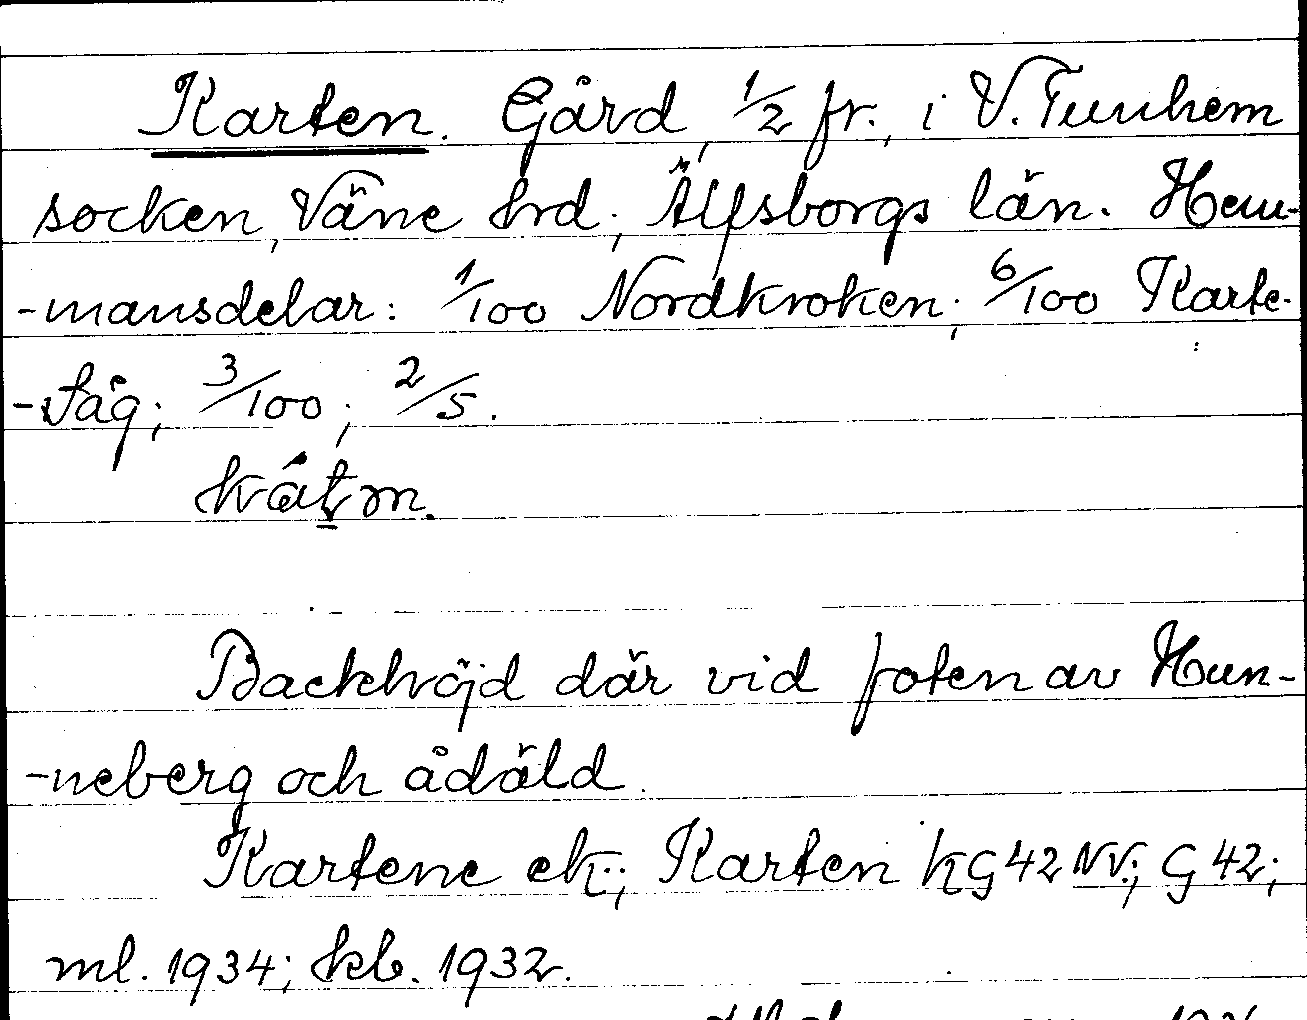 Karten. Gård, 1/2 fr., i V. Tunhem
socken, Väne hrd, Älfsborgs län. Hem-
-mansdelar: 1/100 Nordkroken; 6/100 Karte-
-såg; 3/100; 2/5.
Backhöjd där vid foten av Hun-
-neberg och ådäld.
Kartene ek.; Karten kG42NV.; G42;
ml. 1934; kb. 1932.